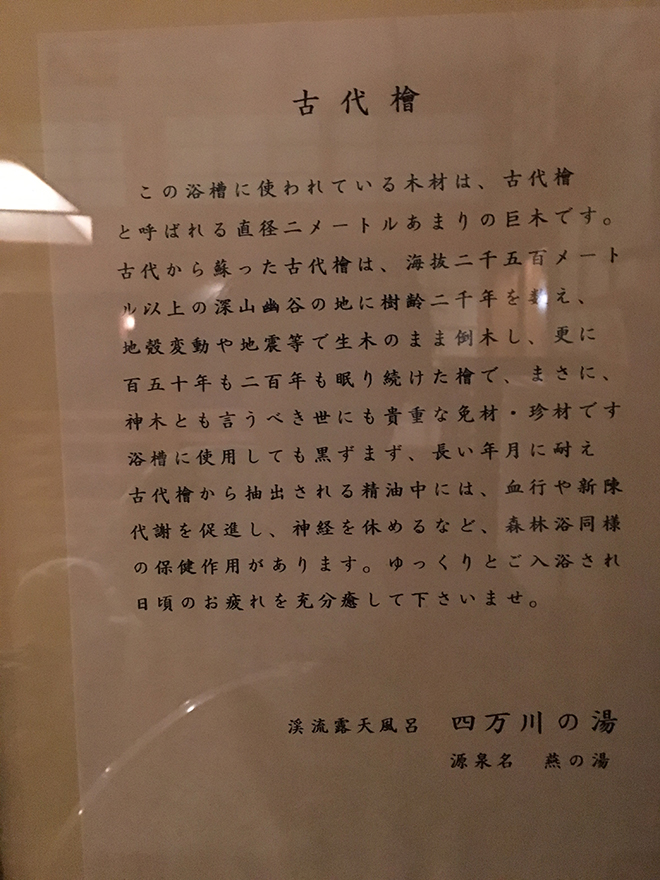 古代檜
この浴槽に使われている木材は、古代檜
と呼ばれる直径二メートルあまりの巨木です。
古代から蘇った古代檜は、海抜二千五百メート
ル以上の深山幽谷の地に樹齢二千年を数え、
地殻変動や地震等で生木のまま倒木し、更に
百五十年も二百年も眠り続けた檜で、まさに、
神木とも言うべき世にも貴重な免材・珍材です
浴槽に使用しても黒ずまず、長い年月に耐え
古代檜から抽出される精油中には、血行や新陳
代謝を促進し、神経を休めるなど、森林浴同様
の保健作用があります。ゆっくりとご入浴され
日頃のお疲れを充分癒して下さいませ。
渓流露天風呂 四万川の湯
源泉名 燕の湯